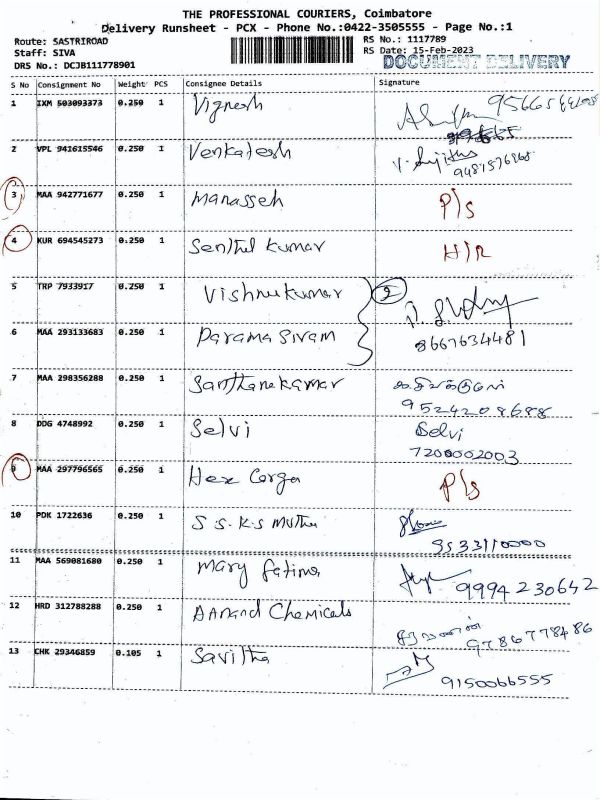 THE PROFESSIONAL COURIERS, Coimbatore
Delivery Runsheet - PCX - Phone No.:0422-3505555 - Page No.:1
Route: SASTRIROAD
Staff: SIVA
DRS No.: DCJB111778901
RS No.: 1117789
RS Date: 15-Feb-2023
DOCUMENT DELIVERY
S No Consignment No Weight PCS Consignee Details Signature
1 IXM 503093373 0.250 1 Vignesh
2 VPL 941615546 0.250 1 Venkatesh
3 MAA 942771677 0.250 1 Manasseh P/s
4 KUR 694545273 0.250 1 Senthil Kumar H/R
5 TRP 7933917 0.250 1 Vishnukumar 2
6 MAA 293133683 0.250 1 Parama Sivam 8667634481
7 MAA 298356288 0.250 1 Santhanakumar
9524208688
8 DDG 4748992 0.250 1 Selvi Selvi
7200002003
9 MAA 297796565 0.250 1 Hex Corga P/s
10 PDK 1722636 0.250 1 S S.K.S Muthu
9533110000
11 MAA 569081680 0.250 1 Mary Fatima 9994230642
12 HRD 312788288 0.250 1 Annand Chemicals சரவணன்
9786778486
13 CHK 29346859 0.105 1 Savitha
9150066555